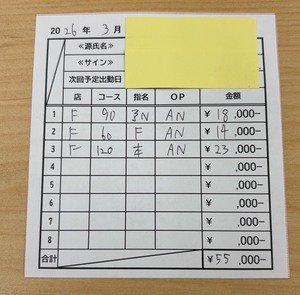 2026年 3月
≪源氏名≫
≪サイン≫
次回予定出勤日
店 コース 指名 OP 金額
1 F 90 ネN AN ¥18,000-
2 F 60 F AN ¥14,000-
3 F 120 本 AN ¥23,000-
4 ¥ ,000-
5 ¥ ,000-
6 ¥ ,000-
7 ¥ ,000-
8 ¥ ,000-
合計 ¥55,000-